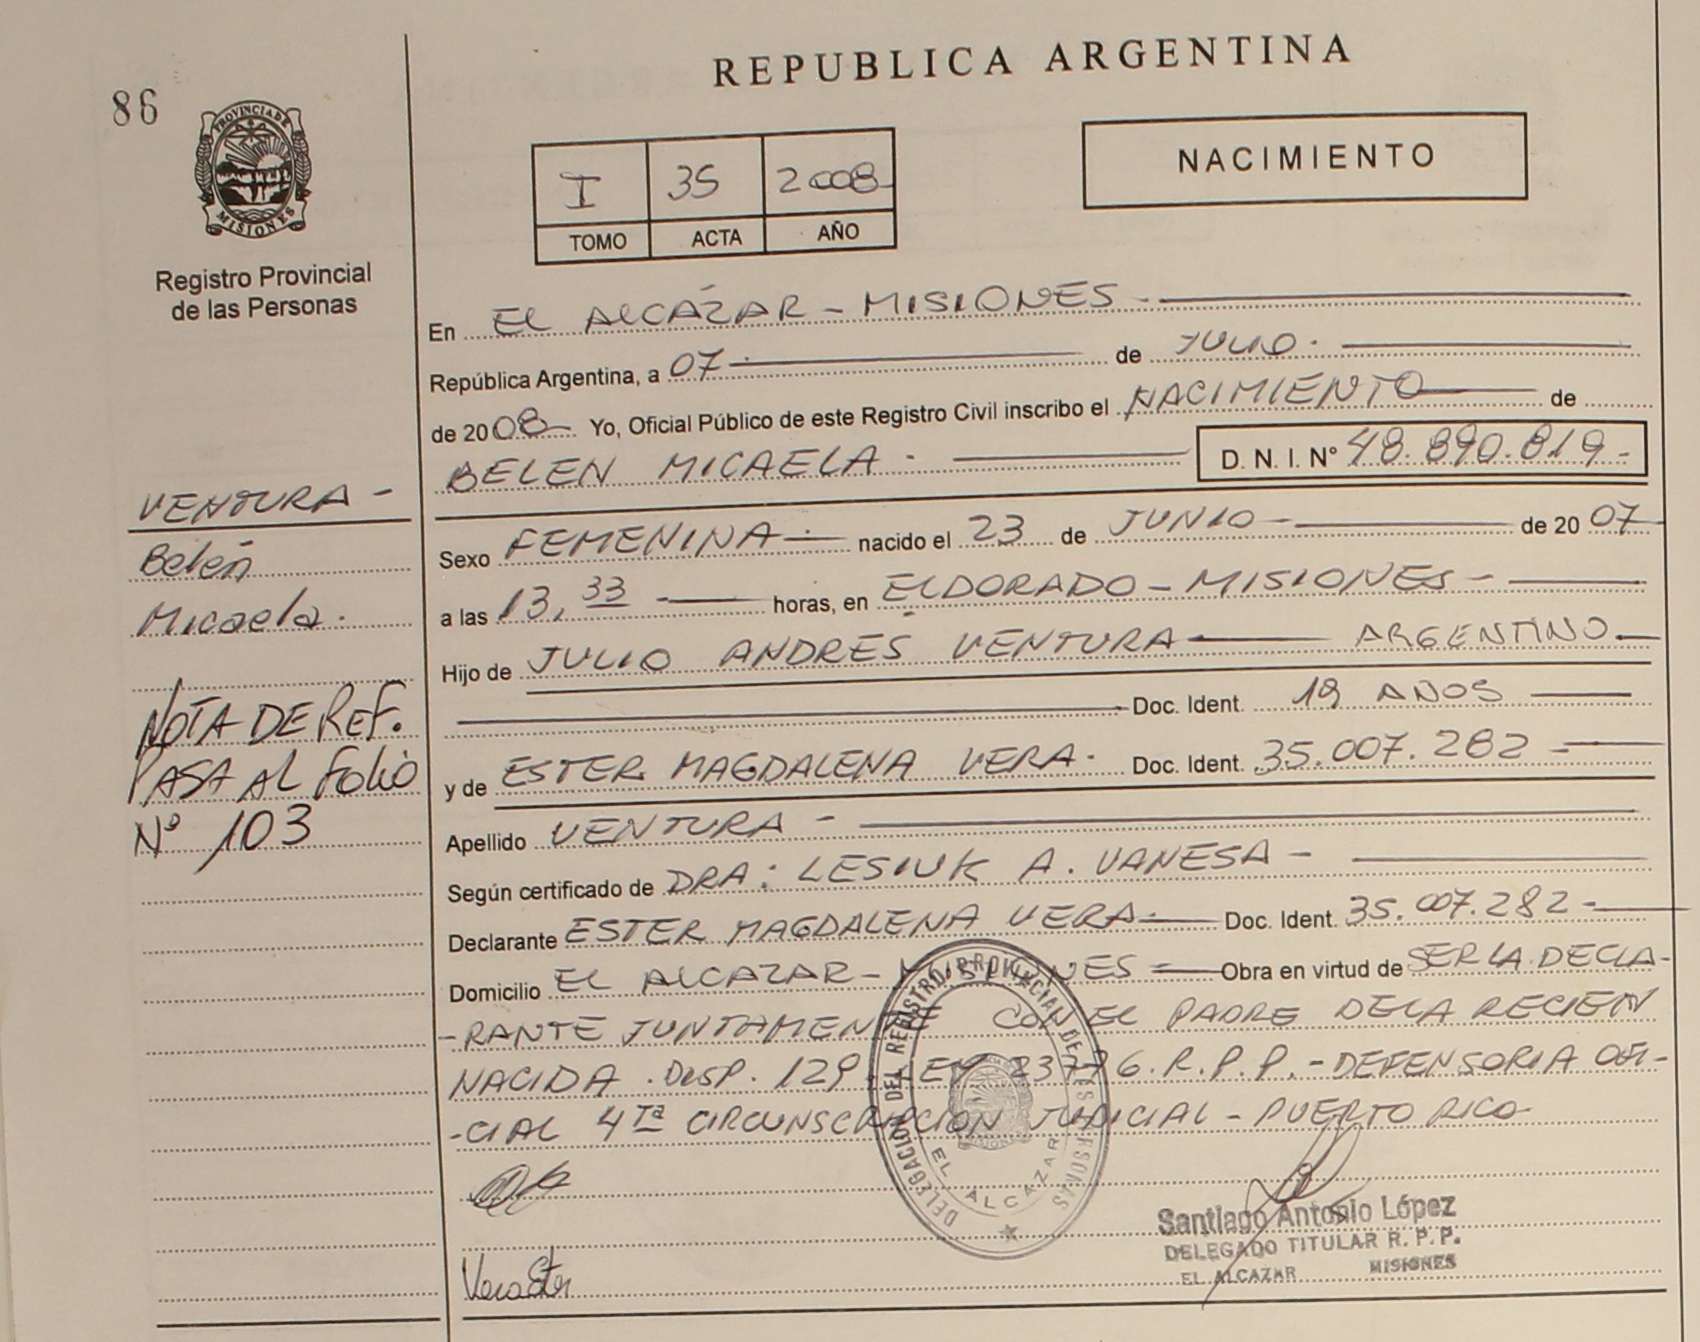 REPUBLICA ARGENTINA
86
PROVINCIA DE
MISIONES
Registro Provincial
de las Personas
I 35 2008
TOMO ACTA AÑO
NACIMIENTO
En EL ALCÁZAR - MISIONES -
República Argentina, a 07 de JULIO.
de 2008 Yo, Oficial Público de este Registro Civil inscribo el NACIMIENTO de
BELEN MICAELA. D. N. I. Nº 48.890.819-
VENTURA -
Belén
Micaela.
NOTA DE REF.
PASA AL Folio
Nº 103
Sexo FEMENINA nacido el 23 de JUNIO - de 2007
a las 13,33 - horas, en ELDORADO - MISIONES -
Hijo de JULIO ANDRES VENTURA ARGENTINO
Doc. Ident. 19 AÑOS
y de ESTER MAGDALENA VERA. Doc. Ident. 35.007.282 -
Apellido VENTURA -
Según certificado de DRA: LESIUK A. VANESA -
Declarante ESTER MAGDALENA VERA Doc. Ident. 35.007.282 -
Domicilio EL ALCAZAR - MISIONES - Obra en virtud de SER LA DECLA-
-RANTE JUNTAMENTE CON EL PADRE DE LA RECIEN
NACIDA. DISP. 129 LEY 23776. R.P.P. - DEFENSORIA OFI-
-CIAL 4TA CIRCUNSCRIPCION JUDICIAL - PUERTO RICO
DELEGACION DEL REGISTRO PROVINCIAL DE LAS PERSONAS
EL ALCAZAR
Santiago Antonio López
DELEGADO TITULAR R. P. P.
EL ALCAZAR MISIONES
Vera Ester